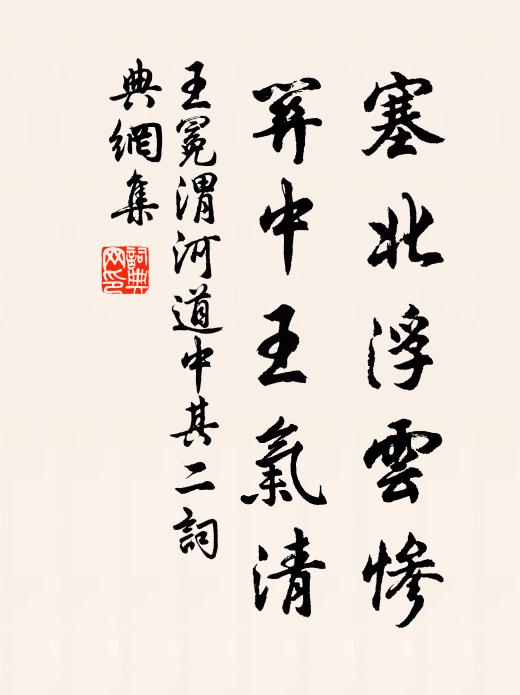 塞北浮雲慘
關中王氣清
王冕渭河道中其二詞
典網集
詞典
网印